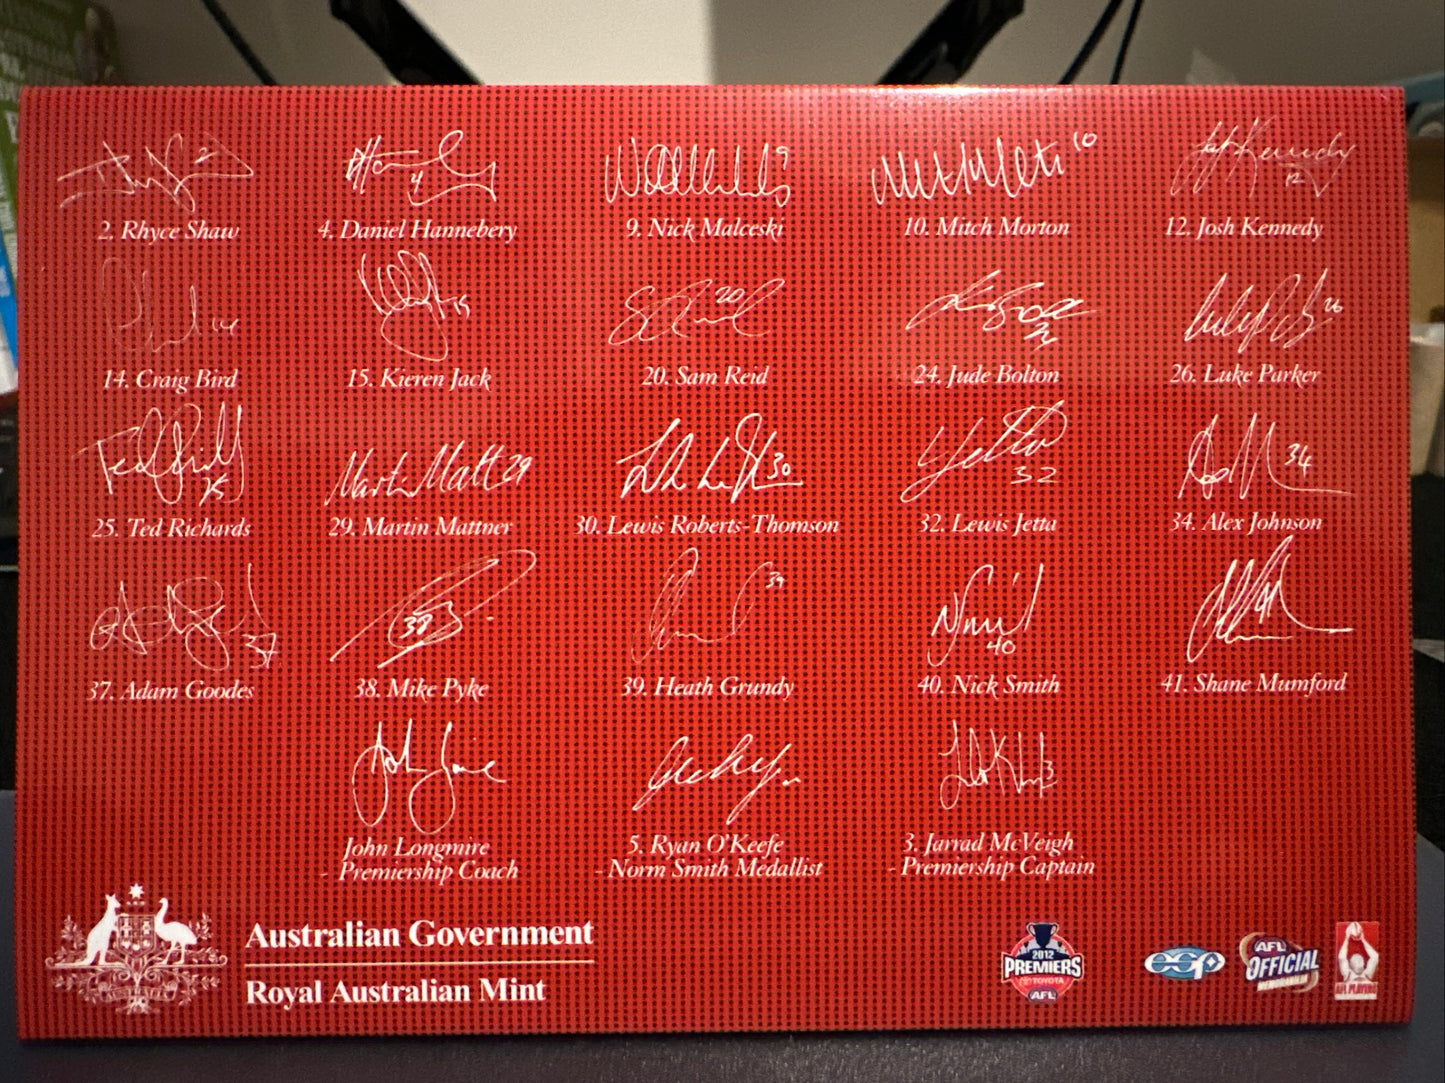 2. Rhyce Shaw
4. Daniel Hannebery
9. Nick Malceski
10. Mitch Morton
12. Josh Kennedy
14. Craig Bird
15. Kieren Jack
20. Sam Reid
24. Jude Bolton
26. Luke Parker
25. Ted Richards
29. Martin Mattner
30. Lewis Roberts-Thomson
32. Lewis Jetta
34. Alex Johnson
37. Adam Goodes
38. Mike Pyke
39. Heath Grundy
40. Nick Smith
41. Shane Mumford
John Longmire
- Premiership Coach
5. Ryan O'Keefe
- Norm Smith Medallist
3. Jarrad McVeigh
- Premiership Captain
Australian Government
Royal Australian Mint
2012
PREMIERS
TOYOTA
AFL
esp
AFL
OFFICIAL
MEMORABILIA
AFL PLAYERS